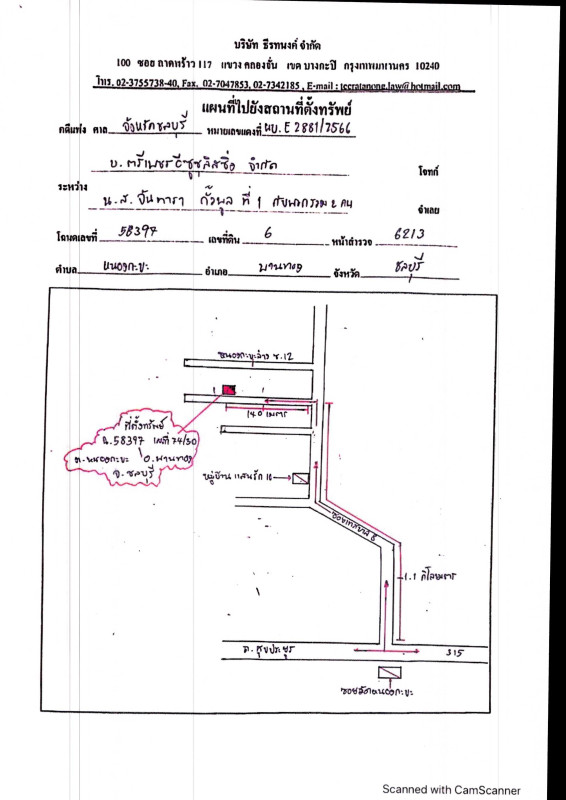 บริษัท ธีรทนงค์ จำกัด
100 ซอย ลาดพร้าว 117 แขวง คลองจั่น เขต บางกะปิ กรุงเทพมหานคร 10240
โทร. 02-3755738-40, Fax. 02-7047853, 02-7342185 , E-mail : teeratanong.law@hotmail.com
แผนที่ไปยังสถานที่ตั้งทรัพย์
คดีแพ่ง ศาล จังหวัดชลบุรี หมายเลขแดงที่ ผบ.E 2881/2566
บ. ตรีเพชรอีซูซุลิสซิ่ง จำกัด โจทก์
ระหว่าง
น.ส. จันทารา ที่ 1 กับพวกรวม 2 คน จำเลย
โฉนดเลขที่ 58397 เลขที่ดิน 6 หน้าสำรวจ 6213
ตำบล หนองกะขะ อำเภอ พานทอง จังหวัด ชลบุรี
ซ.12
140 เมตร
ที่ตั้งทรัพย์
ฉ.58397 เลขที่ 74/50
ต.หนองกะขะ อ.พานทอง
จ.ชลบุรี
หมู่บ้าน แสนรัก 10
ซอยเทศบาล 8
1.1 กิโลเมตร
ถ. สุขประยูร
315
Scanned with CamScanner